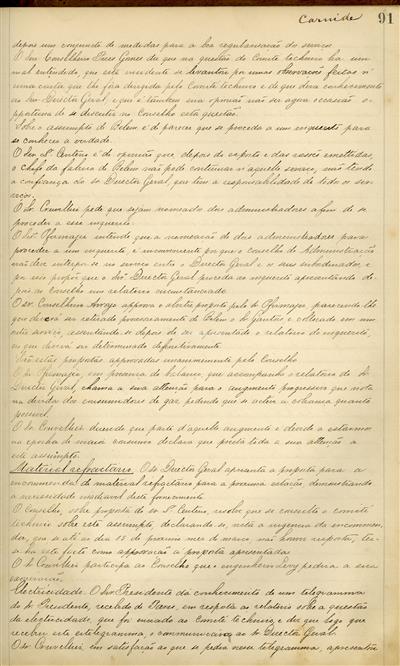 Carnide 91
depois um conjuncto de medidas para a boa regularisação do serviço.
O Snr. Conselheiro Pires Gomes diz que na questão do Comité technico ha um
mal entendido, que este incidente se levantou por umas observações feitas n'
uma carta que lhe fôra dirigida pelo Comité technico e de que dera conhecimento
ao Snr. Director Geral, que é tambem sua opinião não ser agora occasião o-
pportuna de se discutir no Conselho esta questão.
Sobre o assumpto de Belem é de parecer que se proceda a um inquerito para
se conhecer a verdade.
O Snr. Sª Centeno é de opinião que, depois do exposto e das razões emittidas,
o chefe da fabrica de Belem não póde continuar n'aquelle serviço, não tendo
a confiança do Snr. Director Geral, que tem a responsabilidade de todos os ser-
viços.
O Sr. Cruvellier pede que sejam nomeados dois administradores afim de se
proceder a esse inquerito.
O Snr. entende que a nomeação de dois administradores para
proceder a um inquerito, é inconveniente por que o Conselho de Administração
não deve interpôr-se no serviço entre o Director Geral e os seus subordinados, e
por isso propõe que o Snr. Director Geral proceda ao inquerito apresentando de-
pois ao Conselho um relatorio circumstanciado.
O Snr. Conselheiro Arroyo approva a proposta pelo Sr. parecendo-lhe
que deverá ser retirado provisoriamente de Belem o Sr. Santos e collocado em um
outro serviço, assentando-se depois de ser apresentado o relatorio do inquerito,
no que deverá ser determinado definitivamente.
São estas propostas approvadas unanimemente pelo Conselho.
O Sr. em presença do balanço que acompanha o relatorio do Sr.
Director Geral, chama a sua attenção para o augmento progressivo que nota
na divida dos consumidores de gaz pedindo que se active a cobrança quanto
possivel.
O Sr. Cruvellier dizendo que parte d'aquelle augmento é devido a estarmos
na epocha de maior consumo declara que presta toda a sua attenção a
este assumpto.
Material refractario. O Snr. Director Geral apresenta a proposta para a
encommenda do material refractario para a proxima estação, demonstrando
a necessidade inadiavel deste fornecimento.
O Conselho, sobre proposta do Snr. Sª Centeno, resolve que se consulte o comité
technico sobre este assumpto, declarando-se, vista a urgencia da encommen-
da, que se até ao dia 15 do proximo mez de março não houver resposta, to-
ma-se este facto como approvação á proposta apresentada.
O Sr. Cruvellier participa ao Conselho que o engenheiro Levy pedira a sua
exoneração.
Electricidade. O Snr. Presidente dá conhecimento de um telegramma
do Sr. Presidente, recebido de Paris, em resposta ao relatorio sobre a questão
da electricidade, que foi enviado ao Comité technico, e diz que logo que
recebeu este telegramma, o communicára ao Sr. Director Geral.
O Snr. Cruvellier em satisfação ao que se pedia nesse telegramma, apresentou